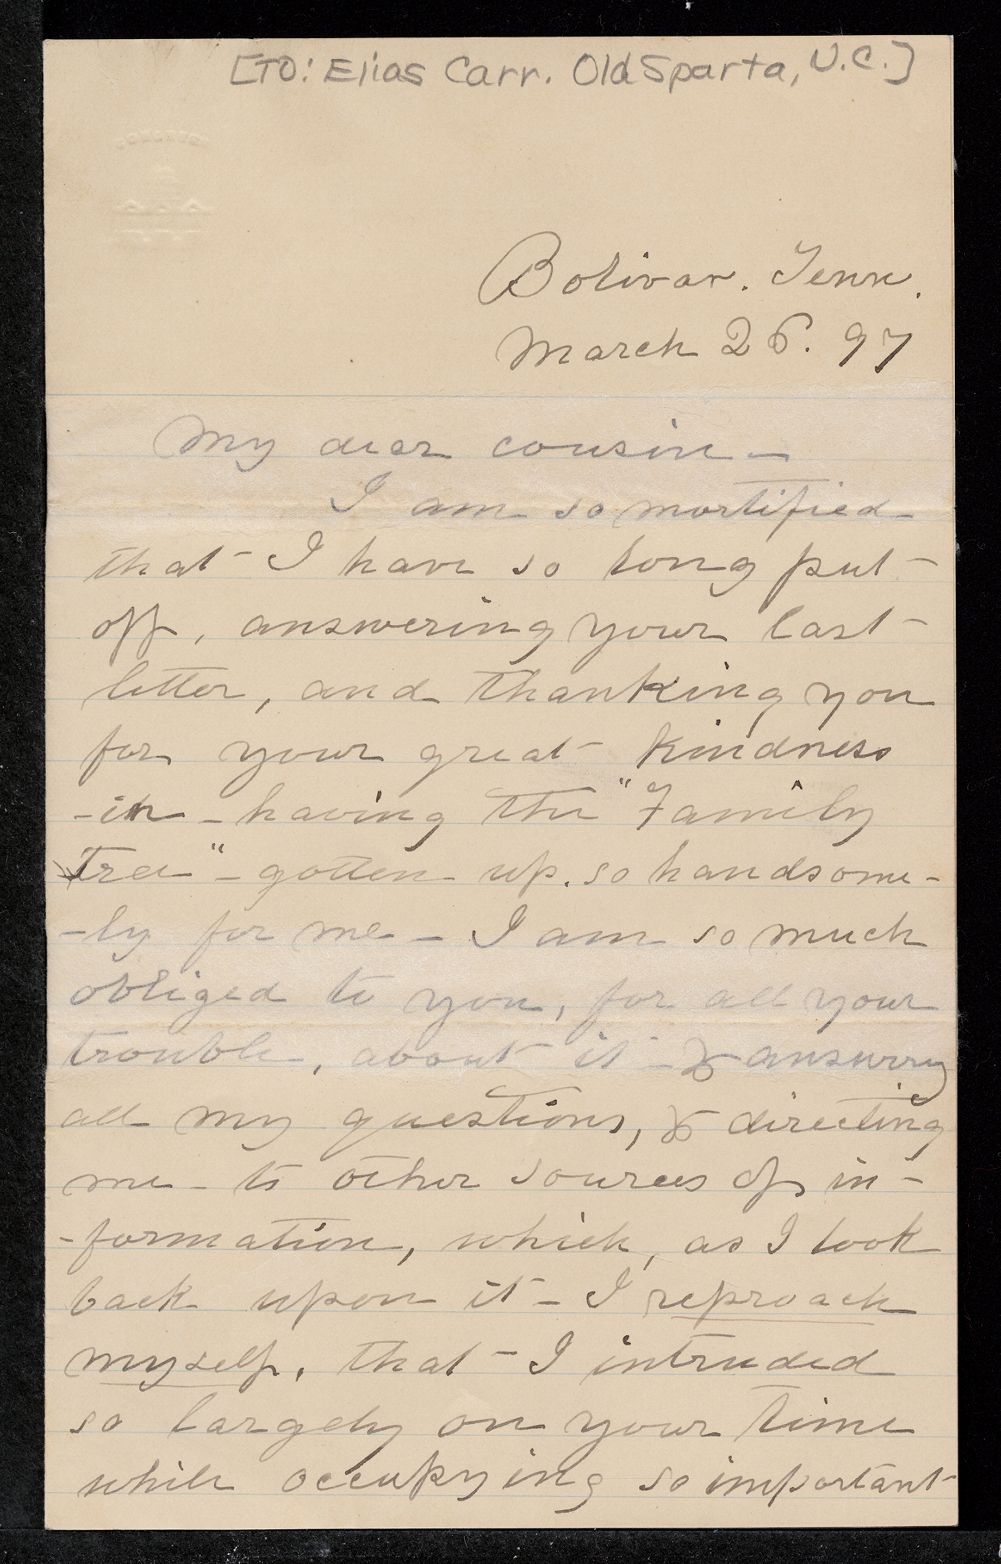 [TO: Elias Carr. Old Sparta, N.C.]
Bolivar. Tenn.
March 26. 97
My dear cousin -
I am so mortified
that - I have so long put -
off, answering your last -
letter, and thanking you
for your great - kindness
- in - having the "Family
Tree" - gotten up. so handsome -
- ly for me - I am so much
obliged to you, for all your
trouble, about it - & answerg
all my questions, & directing
me - to other sources of in -
- formation, which, as I look
back upon it - I reproach
myself, that - I intruded
so largely on your time
while occupying so important -